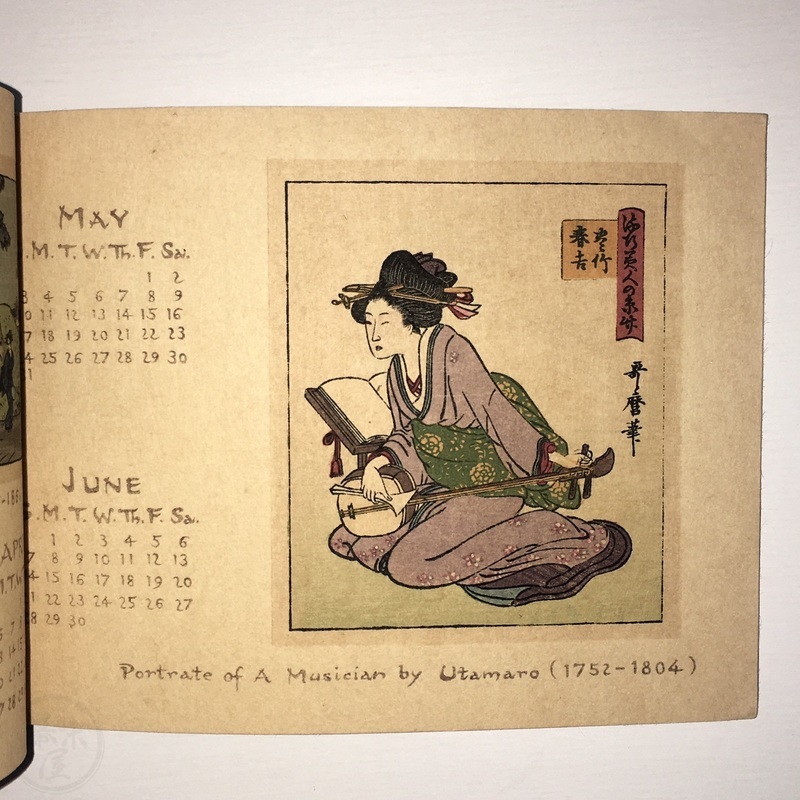 MAY
M. T. W. Th. F. Sa.
1 2
3 4 5 6 7 8 9
0 11 12 13 14 15 16
7 18 19 20 21 22 23
4 25 26 27 28 29 30
1
JUNE
S. M. T. W. Th. F. Sa.
1 2 3 4 5 6
7 8 9 10 11 12 13
4 15 16 17 18 19 20
1 22 23 24 25 26 27
8 29 30
春吉
哥麿筆
Portrate of A Musician by Utamaro (1752-1804)